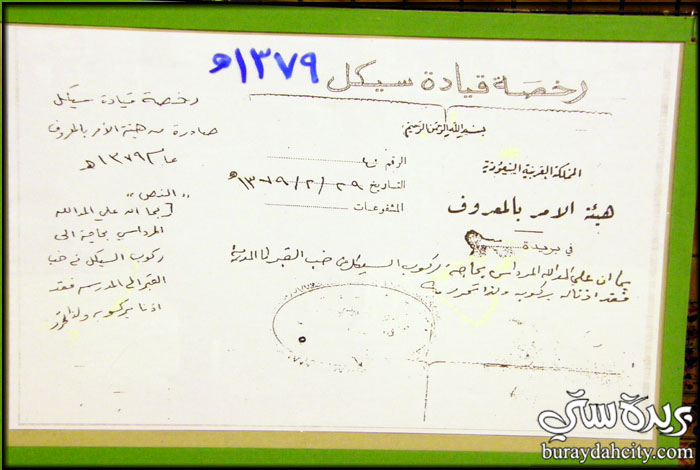 رخصة قيادة سيكل ١٣٧٩هـ
بسم الله الرحمن الرحيم
المملكة العربية السعودية
هيئة الامر بالمعروف
في بريدة
الرقم
التاريخ ٢٩/٢/١٣٧٩هـ
المشفوعات
بما ان علي العبدالله المرداسي بحاجه ركوب السيكل من خب القبر لـا المدرسة
فقد اذنا له بركوبه ولذا تحرر
رخصة قيادة سيكل
صادرة من هيئة الأمر بالمعروف
عام ١٣٧٩هـ
"النص"
[بما انه علي العبدالله
المرداسي بحاجة الى
ركوب السيكل من خب
القبر الى المدرسه فقد
اذنا بركوبه ولذا تحرر
بريدة ستي
buraydahcity.com